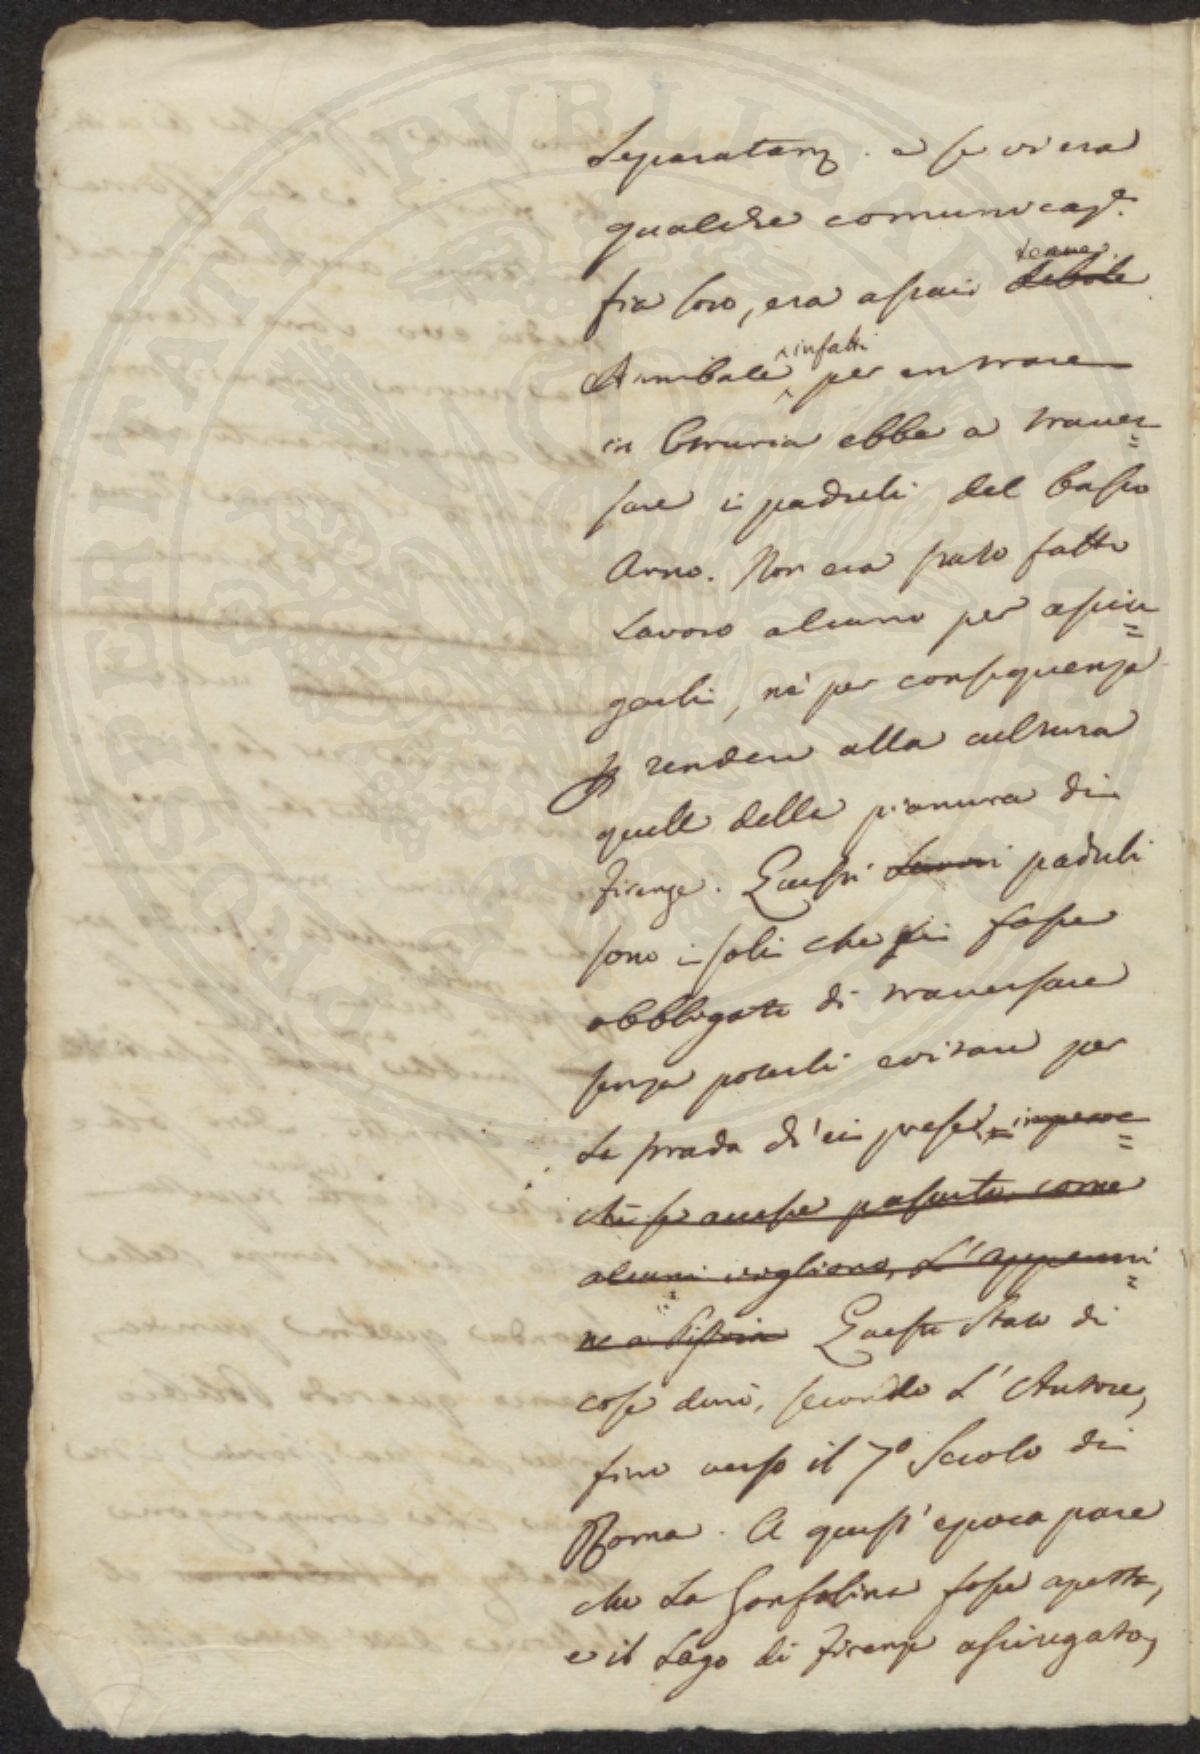 separatam. e se vi era
qualche comunicaz.e
fra loro, era assai tenue debole
Annibale infatti per entrare
in Etruria ebbe a traver=
sare i paduli del basso
Arno. Non era stato fatto
lavoro alcuno per asciu=
garli, nè per conseguenza
rendere alla cultura
quelli della pianura di
Firenze. Questi lavori paduli
sono i soli che ei fosse
obbligato di traversare
senza poterli evitare per
la strada ch'ei prese, imperoc=
chè se avesse passato, come
alcuni vogliono, l'appenni=
no a Pistoia Questo stato di
cose durò, secondo l'Autore,
fino verso il 7o Secolo di
Roma. A quest'epoca pare
che la Gonfolina fosse aperta,
e il Lago di Firenze asciugato,